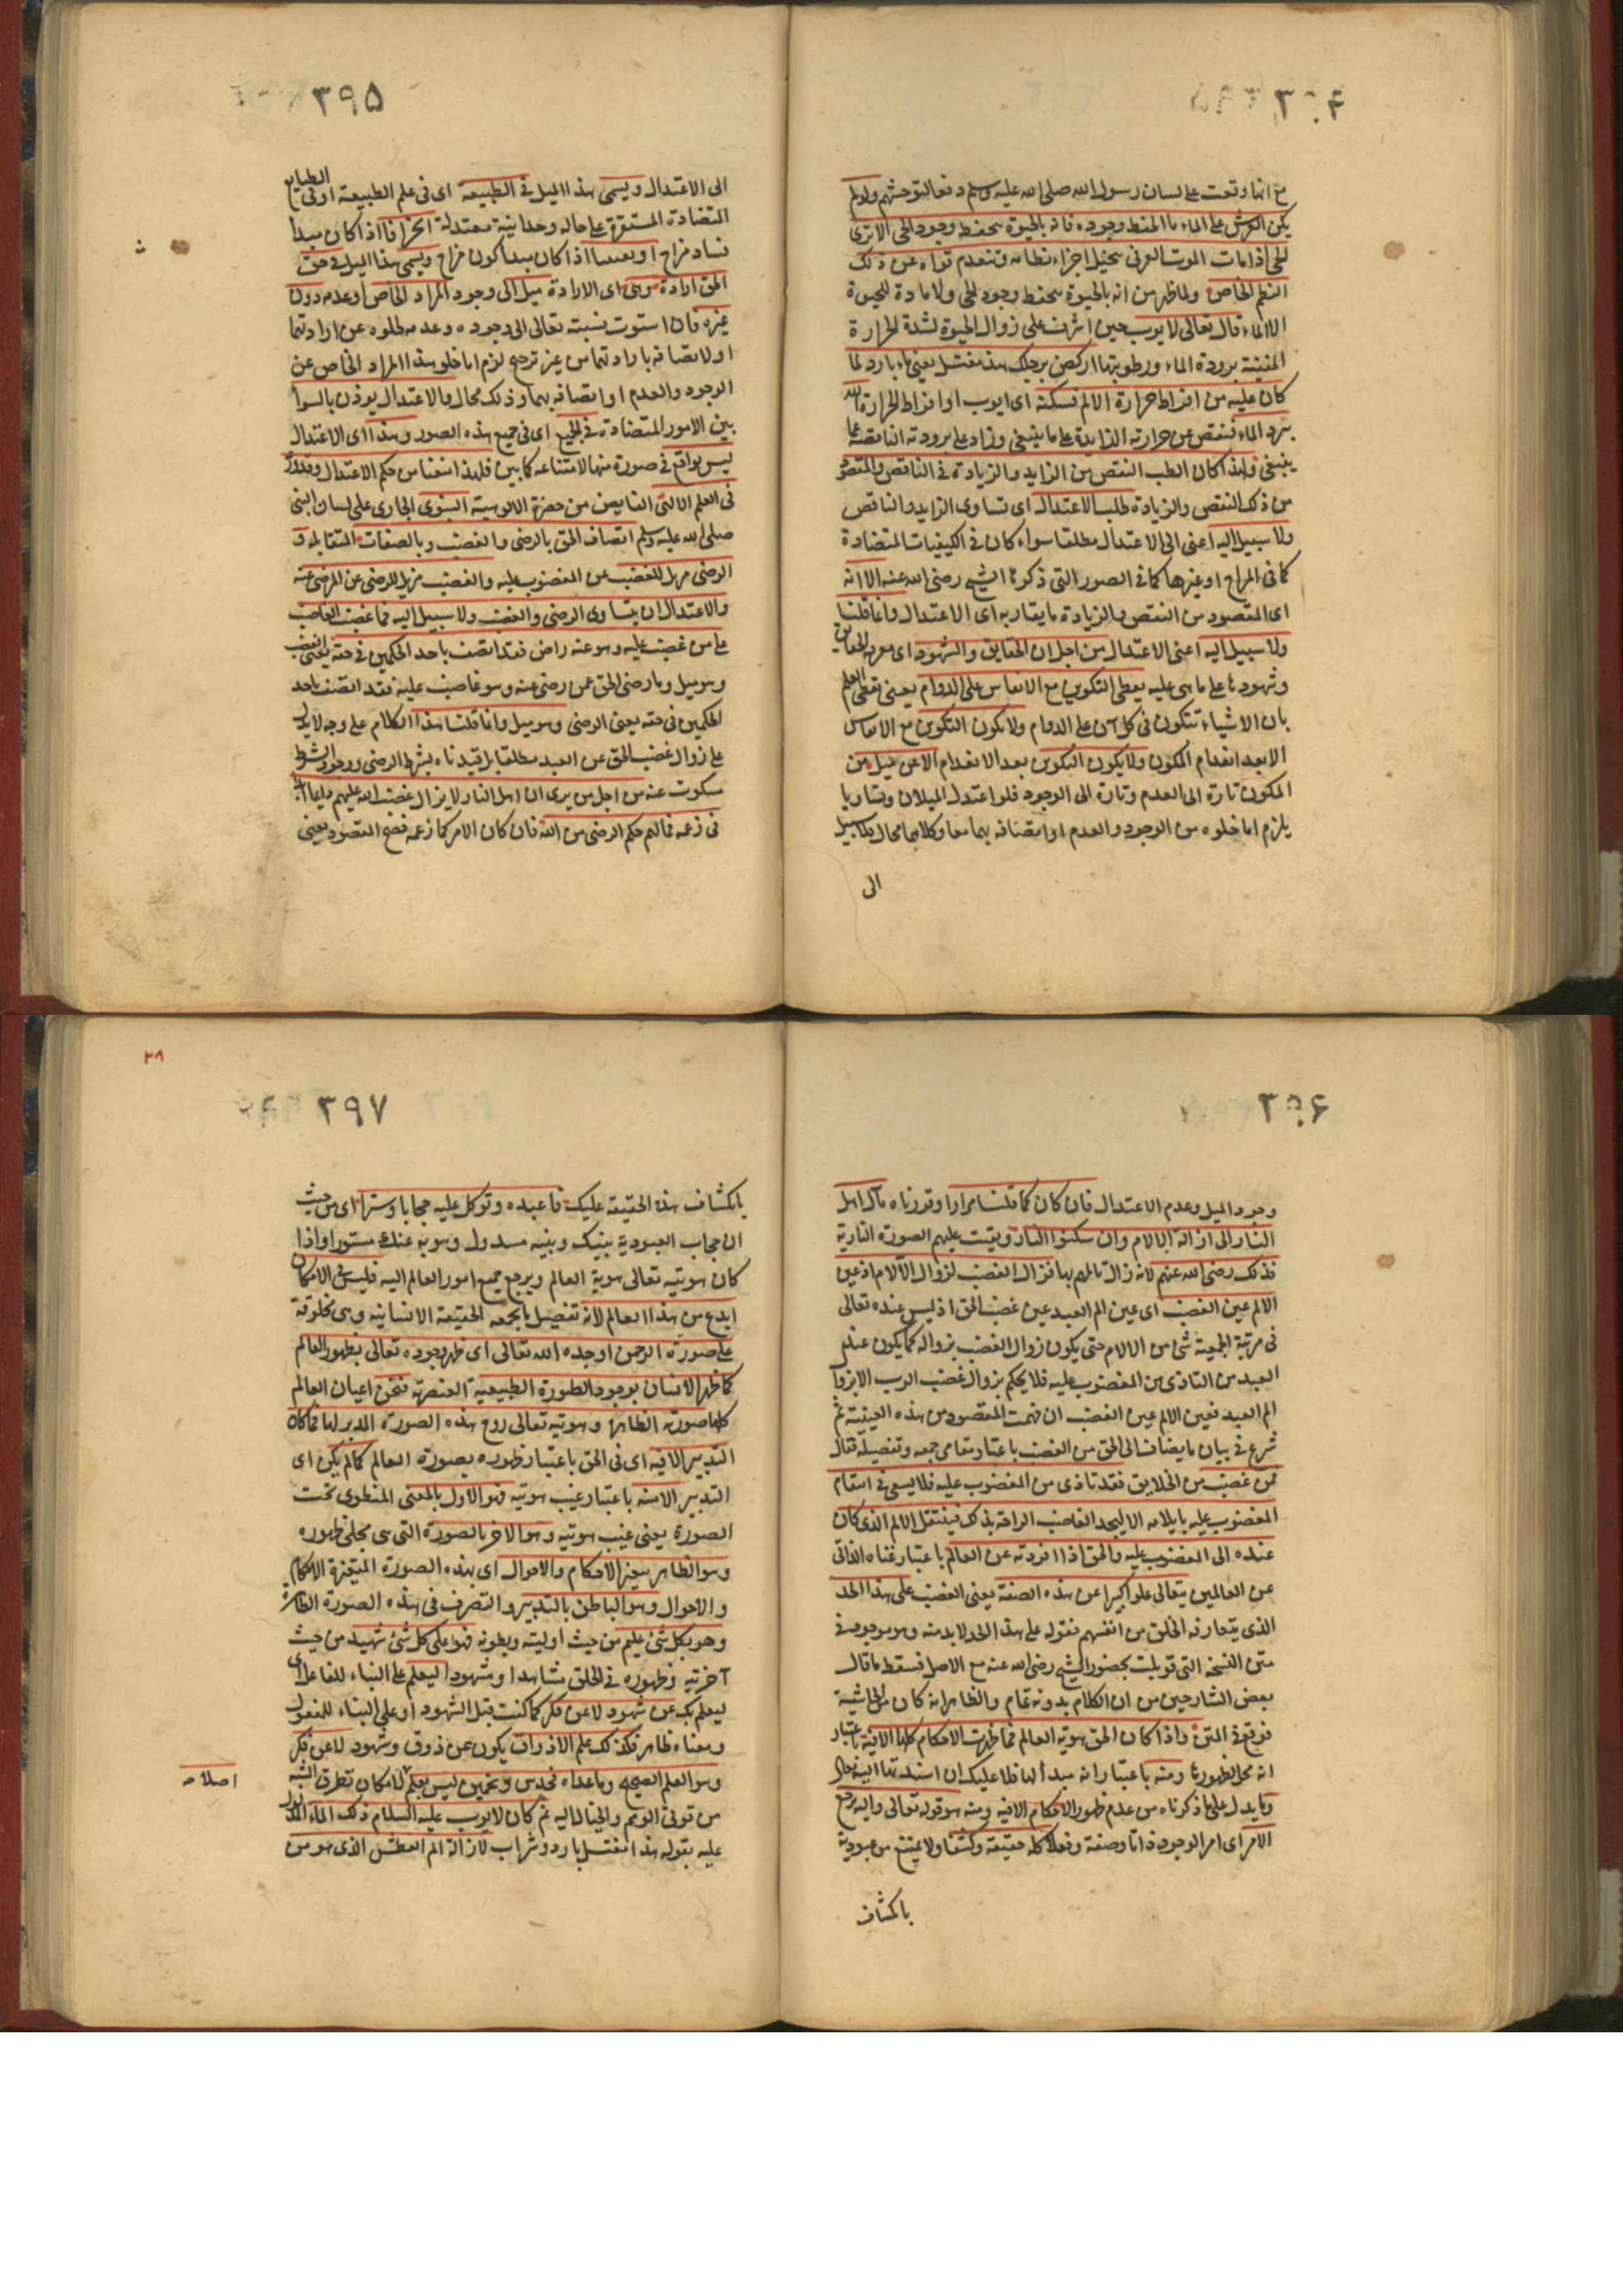 ٣٩۴
مع انها وقعت على لسان رسول الله صلى الله عليه وسلم دفعا لتوحشهم ولو لم
يكن العرش على الماء ما انحفظ وجوده فانه بالحيوة ينحفظ وجود الحى الا ترى
الحى اذا مات الموت العرفى تنحل اجزاء نظامه وتنعدم قواه عن ذلك
النظم الخاص ولما ظهر من انه بالحيوة ينحفظ وجود الحى ولا مادة للحيوة
الا الماء قال تعالى لايوب حين اشرف على زوال الحيوة لشدة الحرارة
المفنية برودة الماء ورطوبتها اركض برجلك هذا مغتسل يعنى ماء بارد لما
كان عليه من افراط حرارة الالم فسكنه اى ايوب او افراط الحرارة الله
ببرد الماء فنقص عن حرارته الزايدة على ما ينبغى وزاد على برودته الناقصة عما
ينبغى ولهذا كان الطب النقص من الزايد والزيادة فى الناقص والمقصود
من ذلك النقص والزيادة طلب الاعتدال اى تساوى الزايد والناقص
ولا سبيل اليه اعنى الى الاعتدال مطلقا سواء كان فى الكيفيات المتضادة
كما فى المزاج او غيرها كما فى الصور التى ذكرها الشيخ رضى الله عنه الا انه
اى المقصود من النقص والزيادة ما يقاربه اى الاعتدال وانما قلنا
ولا سبيل اليه اعنى الاعتدال من اجل ان الحقايق والشهود اى معرفة الحقايق
وشهودها على ما هى عليه يعطى التكوين مع الانفاس على الدوام يعنى تعطى العلم
بان الاشياء تتكون فى كل آن على الدوام ولا يكون التكوين مع الانفاس
الا بعد انعدام المكون ولا يكون التكوين بعد الانعدام الا عن ميل من
المكون تارة الى العدم وتارة الى الوجود فلو اعتدل الميلان وتساويا
يلزم اما خلوه من الوجود والعدم او اتصافه بهما معا وكلاهما محال فلا سبيل
الى
٣٩۵
الى الاعتدال ويسمى هذا الميل فى الطبيعة اى فى علم الطبيعة او فى الطبايع
المتضادة المستقرة على حالة وحدانية معتدلة انحرافا اذا كان مبدأ
فساد مزاج او تعفينا اذا كان مبدأ كون مزاج ويسمى هذا الميل فى حق
الحق ارادة وهى اى الارادة ميل الى وجود المراد الخاص او عدمه دون
غيره فان استوت نسبته تعالى الى وجوده وعدمه لخلوه عن ارادتهما
او لاتصافه بارادتهما من غير ترجيح لزم اما خلو هذا المراد الخاص عن
الوجود والعدم او اتصافه بهما وذلك محال والاعتدال يوذن بالسواء
بين الامور المتضادة فى الجميع اى فى جميع هذه الصور وهذا اى الاعتدال
ليس بواقع فى صورة منها لامتناعه كما بين فلهذا منعنا من حكم الاعتدال وقد ورد
فى العلم الالهى الفايض من حضرة الالوهية النبوى الجارى على لسان النبى
صلى الله عليه وسلم اتصاف الحق بالرضى والغضب وبالصفات المتقابلة و
الرضى مزيل للغضب عن المغضوب عليه والغضب مزيل للرضى عن المرضى عنه
والاعتدال ان يتساوى الرضى والغضب ولا سبيل اليه فما غضب الغاضب
على من غضب عليه وهو عنه راض فقد اتصف باحد الحكمين فى حقه يعنى الغضب
وهو ميل وما رضى الحق عن رضى عنه وهو غاضب عليه فقد اتصف باحد
الحكمين فى حقه يعنى الرضى وهو ميل وانما قلنا هذا الكلام على وجه لا يدل
على زوال غضب الحق عن العبد مطلقا بل قيدناه بشرط الرضى ووجود الشرط
مسكوت عنه من اجل من يرى ان اهل النار لا يزال غضب الله عليهم دايما ابدا
فى زعمه فما لهم حكم الرضى من الله فان كان الامر كما زعمه فصح المقصود يعنى
٣٩۶
وجود الميل وعدم الاعتدال فان كان كما قلنا مرارا وقررناه مآل اهل
النار الى ازالة الآلام وان سكنوا النار وبقيت عليهم الصورة النارية
فذلك رضى الله عنهم لانه زال تالمهم بها فزال الغضب لزوال الآلام اذ عين
الالم عين الغضب اى عين الم العبد عين غضب الحق اذ ليس عنده تعالى
فى مرتبة الجمعية شئ من الآلام حتى يكون زوال الغضب بزواله كما يكون عند
العبد من التاذى من المغضوب عليه فلا يحكم بزوال غضب الرب الا بزوال
الم العبد فعين الالم عين الغضب ان فهمت المقصود من هذه العينية ثم
شرع فى بيان ما يضاف الى الحق من الغضب باعتبار مقامى جمعه وتفصيله فقال
فمن غضب من الخلايق فقد تاذى من المغضوب عليه فلا يسعى فى انتقام
المغضوب عليه بايلامه الا ليجد الغاضب الراحة بذلك فينتقل الالم الذى كان
عنده الى المغضوب عليه والحق اذا افردته عن العالم باعتبار غناه الذاتى
عن العالمين يتعالى علوا كبيرا عن هذه الصفة يعنى الغضب على هذا الحد
الذى يتعارفه الخلق من انفسهم فقوله على هذا الحد لا بد منه وهو موجود فى
متن النسخة التى قوبلت بحضور الشيخ رضى الله عنه مع الاصل فسقط ما قال
بعض الشارحين من ان الكلام بدونه تمام والظاهر انه كان من الحاشية
فوقع فى المتن واذا كان الحق هوية العالم فما ظهرت الاحكام كلها الا فيه باعتبار
انه محل لظهورها ومنه باعتبار انه مبدأ لها فلا عليك ان اسندتها اليه
ومما يدل على ما ذكرناه من عدم ظهور الاحكام الا فيه ومنه هو قوله تعالى واليه يرجع
الامر اى امر الوجود ذاتا وصفة وفعلا كله حقيقة وكشفا ولا يمتنع من عبودية
بانكشاف
٢٩
٣٩٧
بانكشاف هذه الحقيقة عليك فاعبده وتوكل عليه حجابا وسترا اى من حيث
ان حجاب العبودية بينك وبينه مسدول وهو به عنك مستور واذا
كان هويته تعالى هوية العالم ويرجع جميع امور العالم اليه فليس فى الامكان
ابدع من هذا العالم لانه تفصيل ما يجمعه الحقيقة الانسانية وهى مخلوقة
على صورة الرحمن اوجده الله تعالى اى ظهر وجوده تعالى بظهور العالم
كما ظهر الانسان بوجود الصورة الطبيعية العنصرية فنحن اعيان العالم
كلها صورته الظاهرة وهويته تعالى روح هذه الصورة المدبر لها فما كان
التدبير الا فيه اى فى الحق باعتبار ظهوره بصورة العالم كما لم يكن اى
التدبير الا منه باعتبار غيب هويته فهو الاول بالمعنى المنطوى تحت
الصورة يعنى غيب هويته وهو الآخر بالصورة التى هى مجلى ظهوره
وهو الظاهر بتغير الاحكام والاحوال اى بهذه الصورة المتغيرة الاحكام
والاحوال وهو الباطن بالتدبير والتصرف فى هذه الصورة الظاهرة
وهو بكل شئ عليم من حيث اوليته وبطونه فهو على كل شئ شهيد من حيث
آخريته وظهوره فى الخلق مشاهدا ومشهودا ليعلم على البناء للفاعل اى
ليعلم بك عن شهود لا عن فكر كما كنت قبل الشهود او على البناء للمفعول
ومعناه ظاهر فكذلك علم الاذواق يكون عن ذوق وشهود لا عن فكر
وهو العلم الصحيح وما عداه فحدس وتخمين ليس بعلم لامكان تطرق الشبه
اصلا
من قوتى الوهم والخيال اليه ثم كان لايوب عليه السلام ذلك الماء المدلول
عليه بقوله هذا مغتسل بارد وشراب لازالة الم العطش الذى هو من